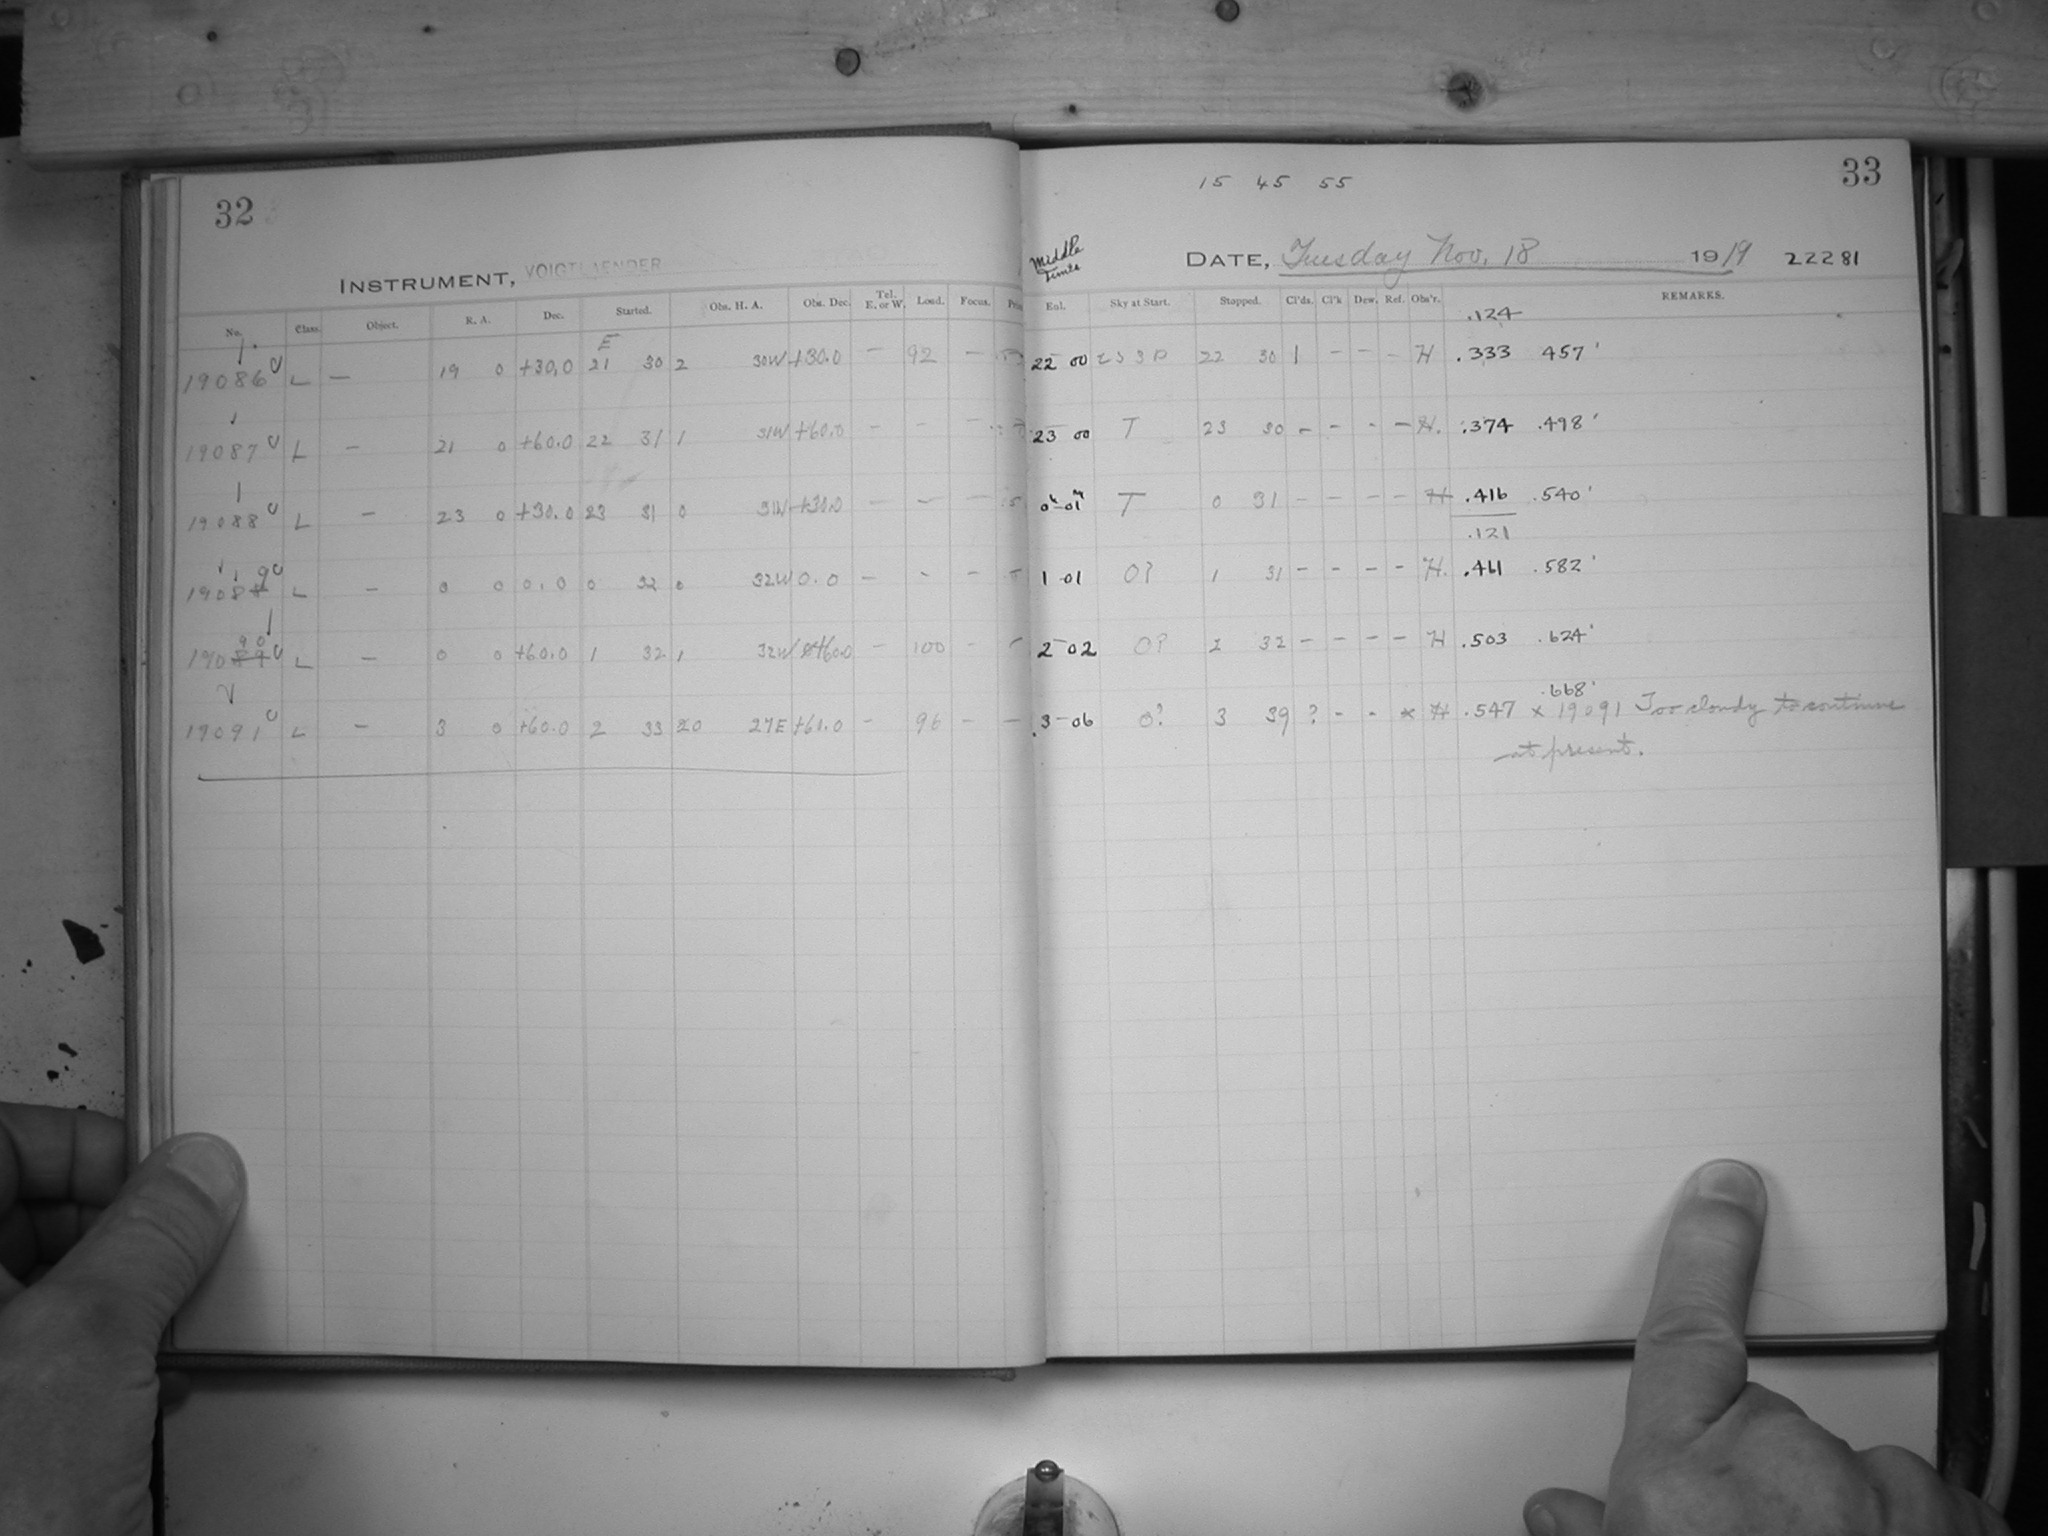 32
INSTRUMENT, VOIGTLAENDER
No. Class. Object. R. A. Dec. Started. Obs. H. A. Obs. Dec. Tel. E. or W. Load. Focus.
E
19086 L — 19 0 +30.0 21 30 2 30W +30.0 — 92 —
19087 L — 21 0 +60.0 22 31 1 31W +60.0 — - -
19088 L — 23 0 +30.0 23 31 0 31W +30.0 — — —
19089 L — 0 0 0.0 0 32 0 32W 0.0 — - —
19090 L — 0 0 +60.0 1 32 1 32W +60.0 — 100 -
19091 L — 3 0 +60.0 2 33 20 27E +60.0 - 96 - —
33
15 45 55
Middle Times
DATE, Tuesday Nov. 18 1919 22281
Enl. Sky at Start. Stopped. Cl'ds. Cl'k Dew. Ref. Obs'r. REMARKS.
.124
22 00 22 30 1 - - - H .333 457'
23 00 T 23 30 - - - - H. .374 .498'
0h-01m T 0 31 - - - - H .416 .540'
.121
1-01 O? 1 31 - - - - H. .461 .582'
2-02 O? 2 32 - - - - H .503 .624'
.668'
3-06 O? 3 39 ? - - x H .547 x 19091 Too cloudy to continue
at present.